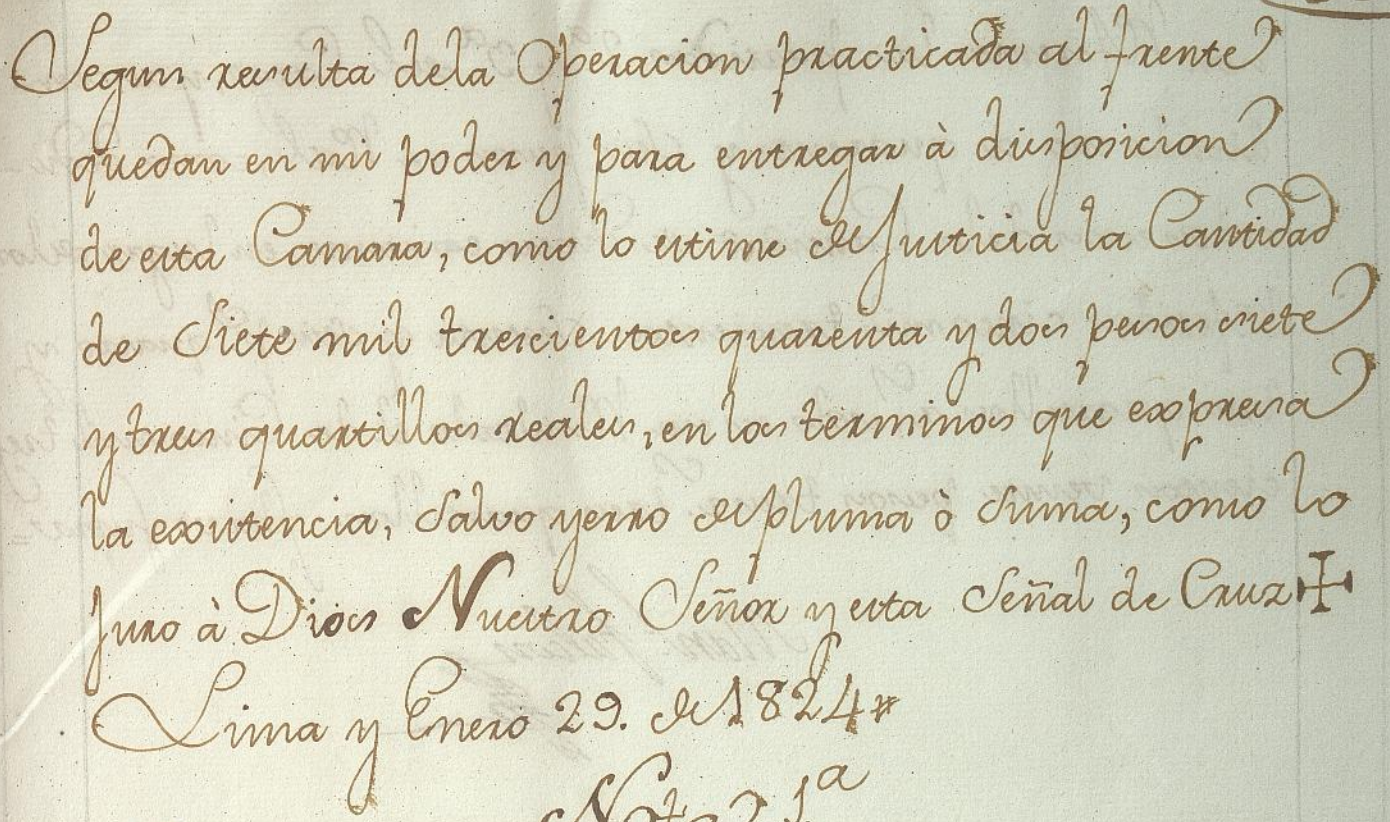 Segun resulta dela Operacion practicada al frente
quedan en mi poder y para entregar à disposicion
de esta Camara, como lo estime de Justicia la Cantidad
de Siete mil trescientos quarenta y dos pesos siete
y tres quartillos reales, en los terminos que expresa
la existencia, Salvo yerro de pluma ò Suma, como lo
Juro à Dios Nuestro Señor y esta Señal de Cruz ✠
Lima y Enero 29. de 1824#
Nota 1ª